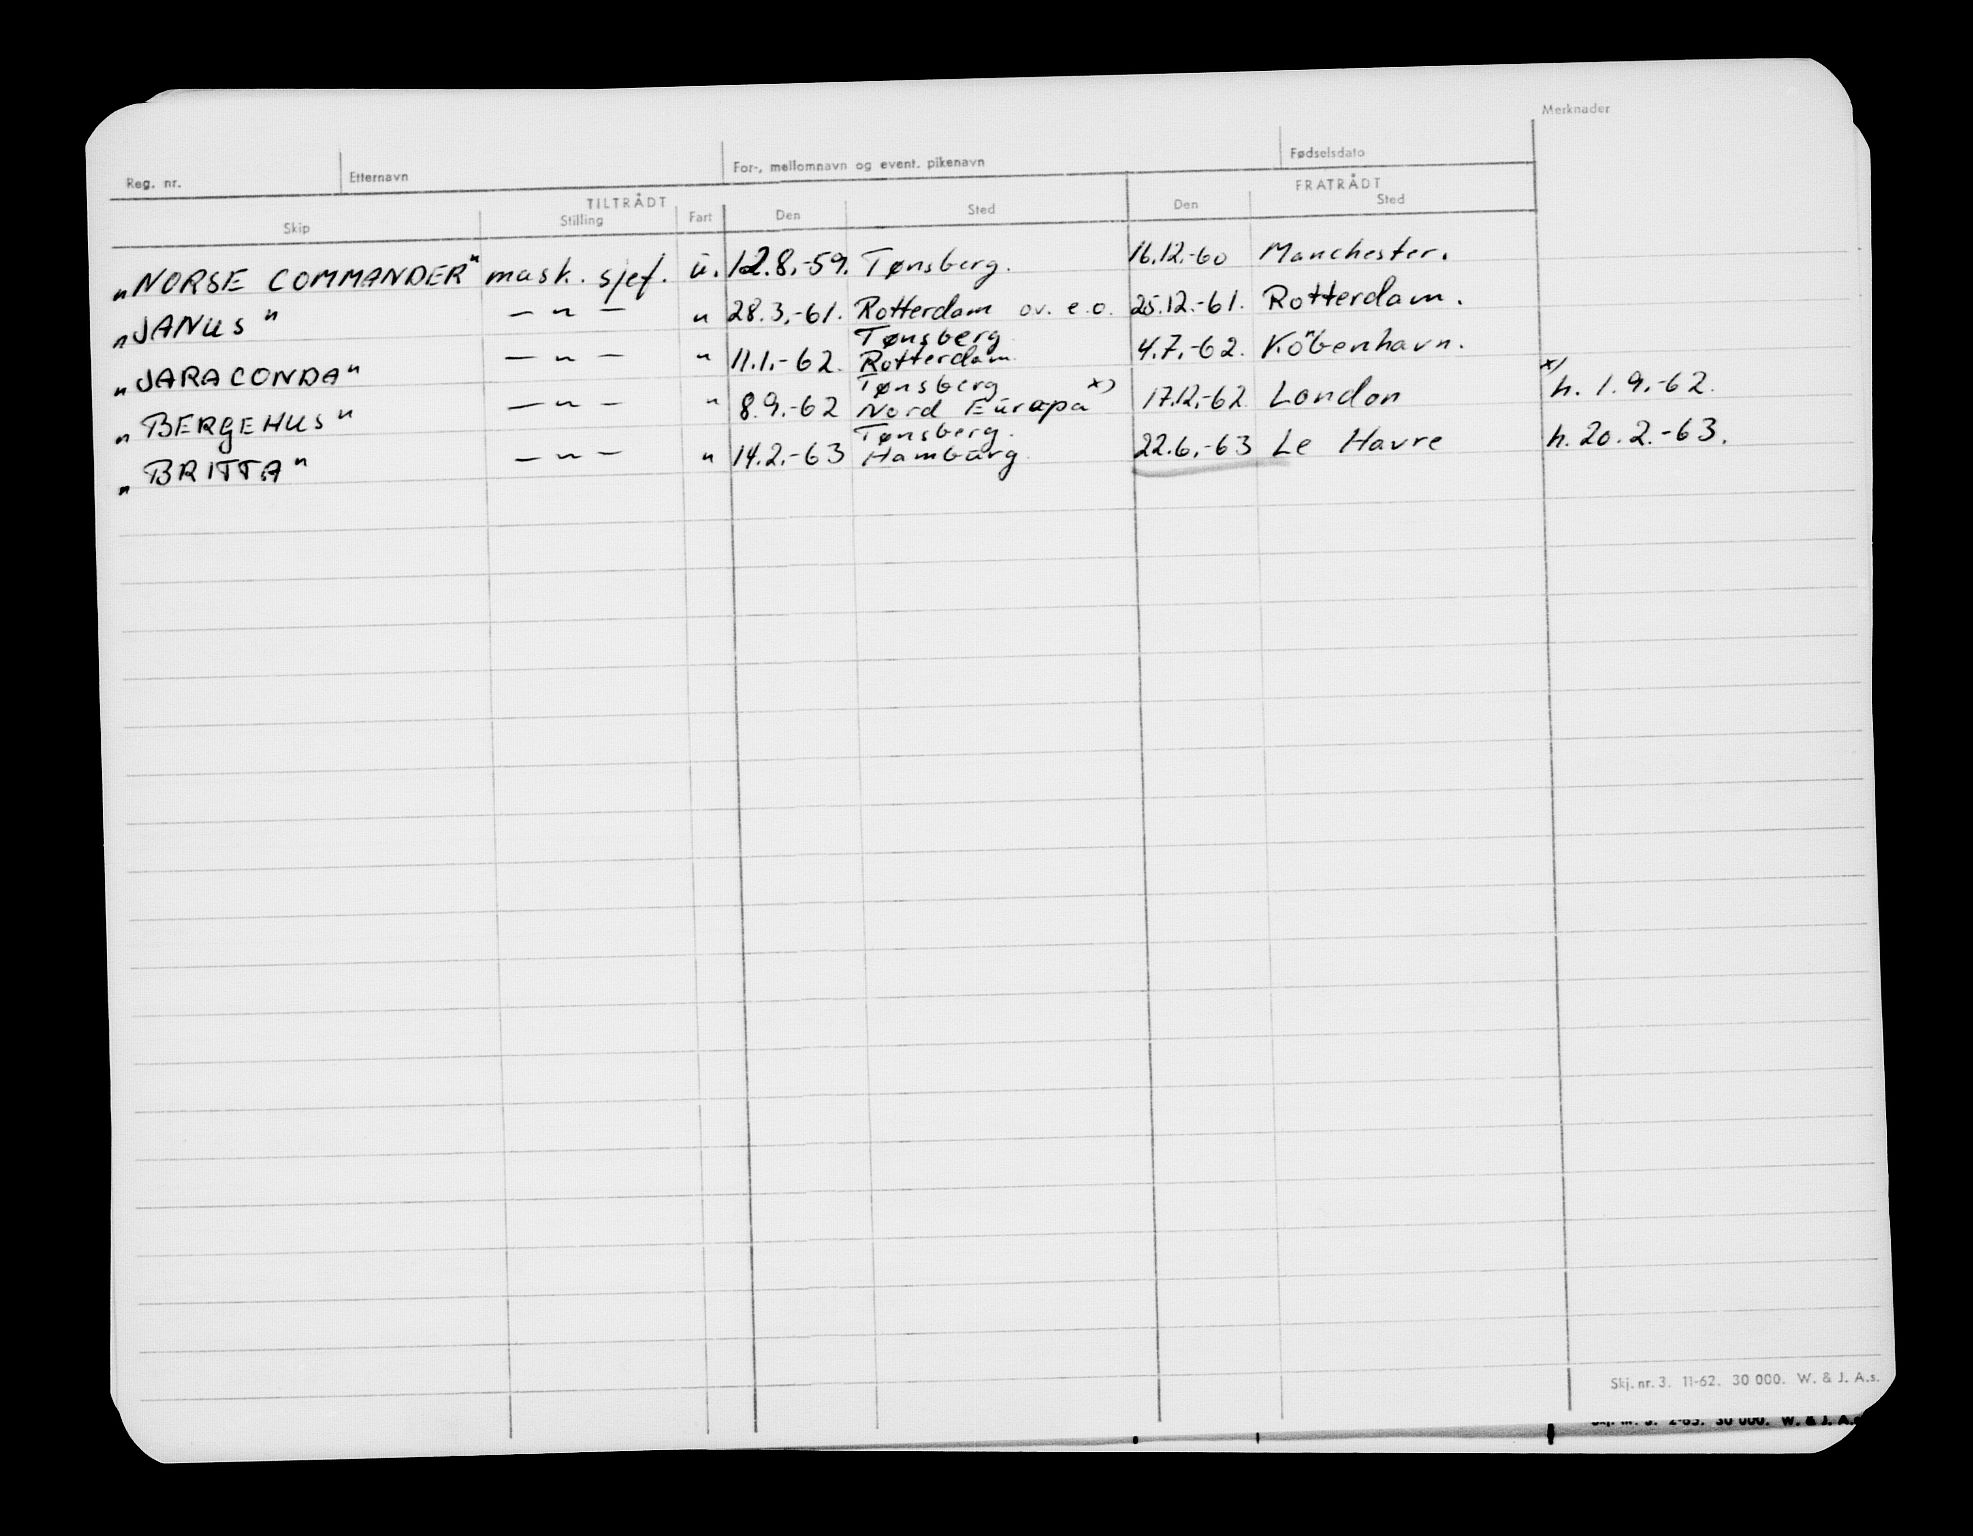 Merknader
Reg. nr. Etternavn For-, mellomnavn og event. pikenavn Fødselsdato
TILTRÅDT FRATRÅDT
Skip Stilling Fart Den Sted Den Sted
„NORSE COMMANDER" mask. sjef. u. 12.8.-59. Tønsberg. 16.12.-60 Manchester.
„JANUS" — " — " 28.3.-61. Rotterdam ov. e.o. 25.12.-61. Rotterdam.
Tønsberg
„JARACONDA" — " — " 11.1.-62. Rotterdam 4.7.-62. Köbenhavn.
Tønsberg x) x)
„BERGEHUS" — " — " 8.9.-62 Nord Europa 17.12.-62 London h. 1.9.-62.
Tønsberg.
„BRITTA" — " — " 14.2.-63 Hamburg 22.6.-63 Le Havre h. 20.2.-63.
Skj. nr. 3. 11-62. 30 000. W. & J. A.s.
Skj. nr. 3. 2-65. 30 000. W. & J. A.s